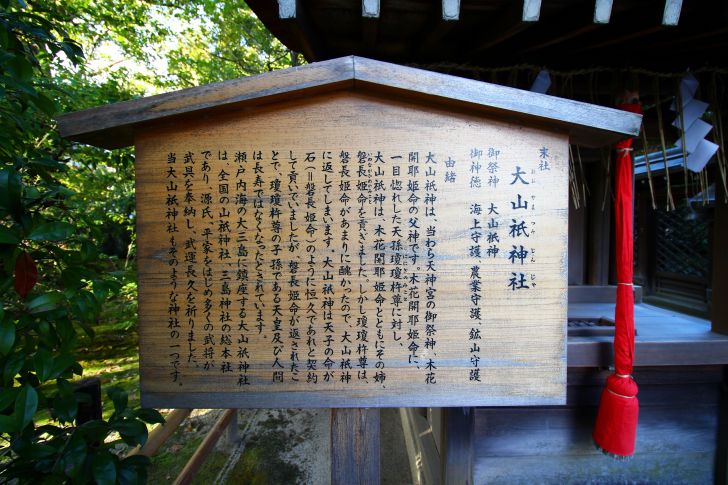 末社
大山祇神社
おおやまつみじんじゃ
御祭神 大山祇神
御神徳 海上守護、農業守護、鉱山守護
由緒
大山祇神は、当わら天神宮の御祭神、木花
開耶姫命の父神です。木花開耶姫命に、
一目惚れした天孫瓊瓊杵尊に対し、
大山祇神は、木花開耶姫命とともにその姉、
磐長姫命を貢ぎました。しかし瓊瓊杵尊は、
磐長姫命があまりに醜かったので、大山祇神
に返してしまいます。大山祇神は天子の命が
石(=磐長姫命)のように恒久であれと契約
して貢いでいましたが、磐長姫命が返されたこ
とで、瓊瓊杵尊の子孫である天皇及び人間
は長寿ではなくなったとされています。
瀬戸内海の大三島に鎮座する大山祇神社
は、全国の山祇神社、三島神社の総本社
であり、源氏、平家をはじめ多くの武将が
武具を奉納し、武運長久を祈りました。
当大山祇神社もそのような神社の一つです。